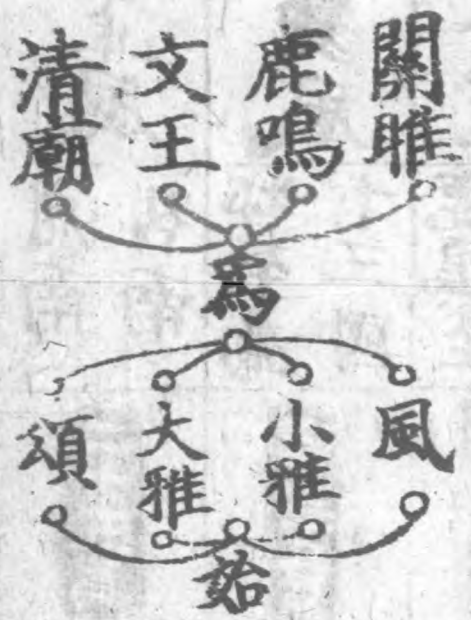 關雎
鹿鳴
文王
清廟
為
風
小雅
大雅
頌
詒